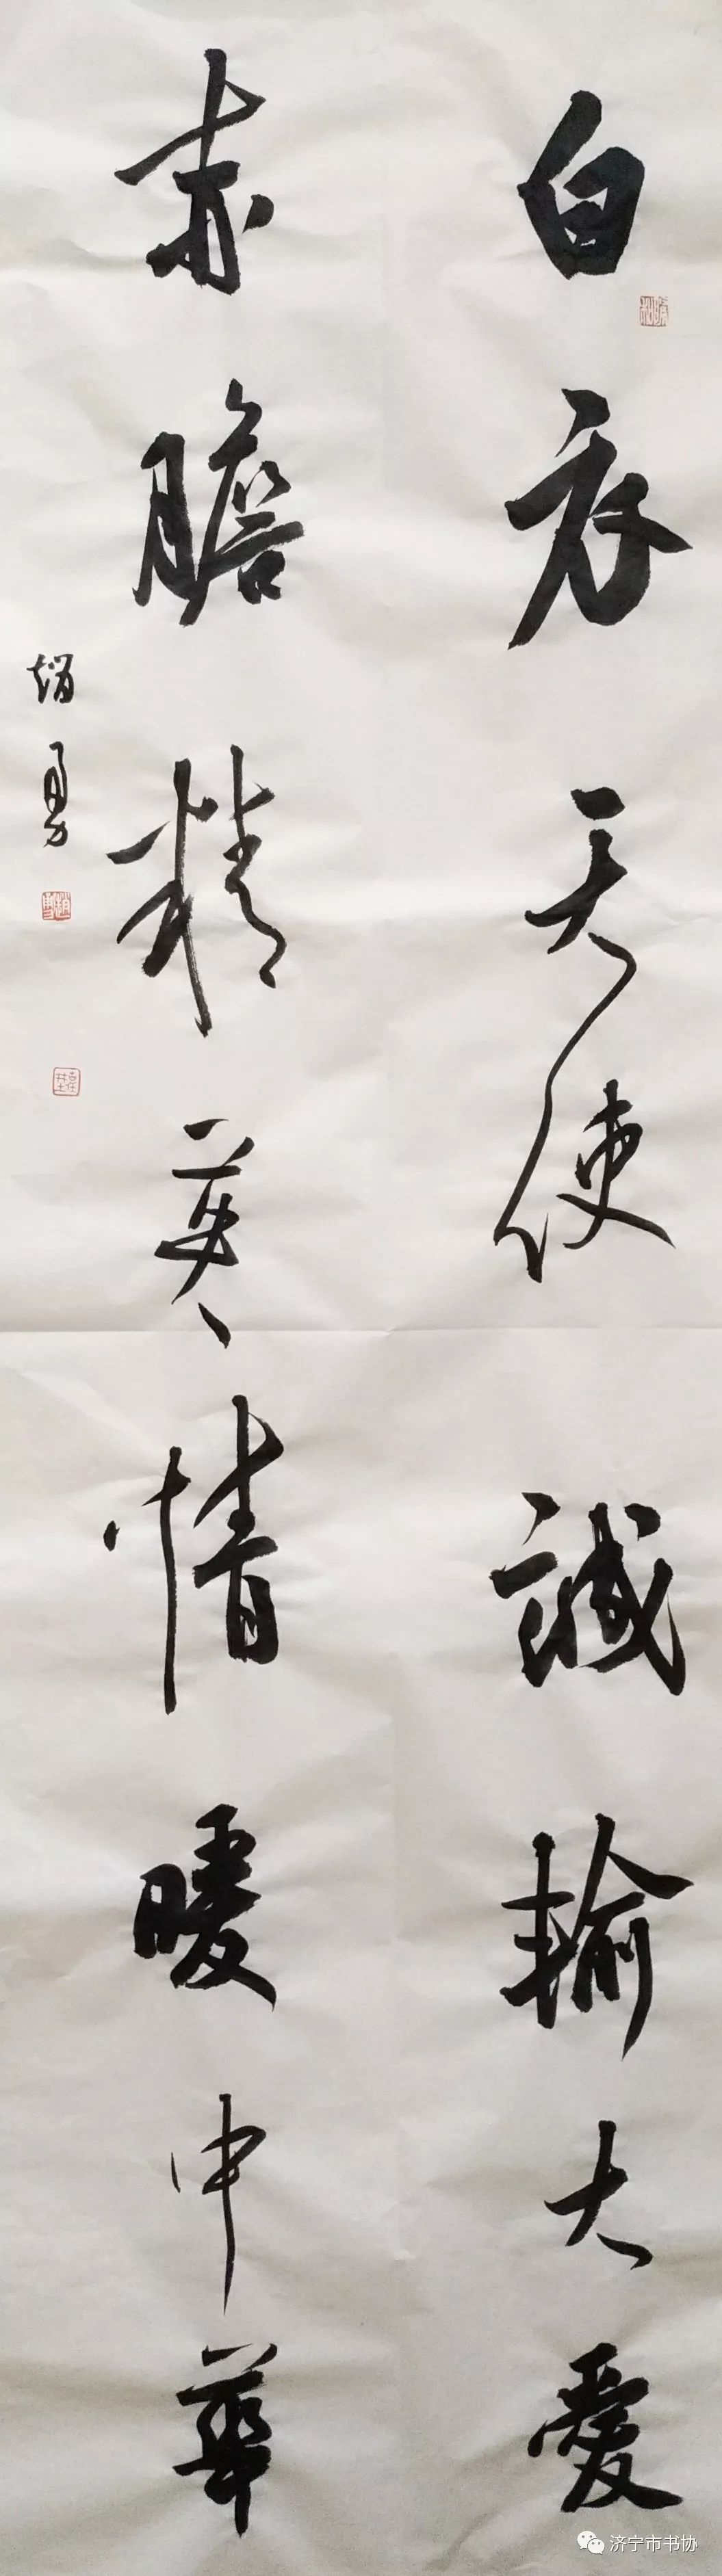 白衣天使誠輸大愛
赤膽精英情暖中華
趙勇
济宁市书协